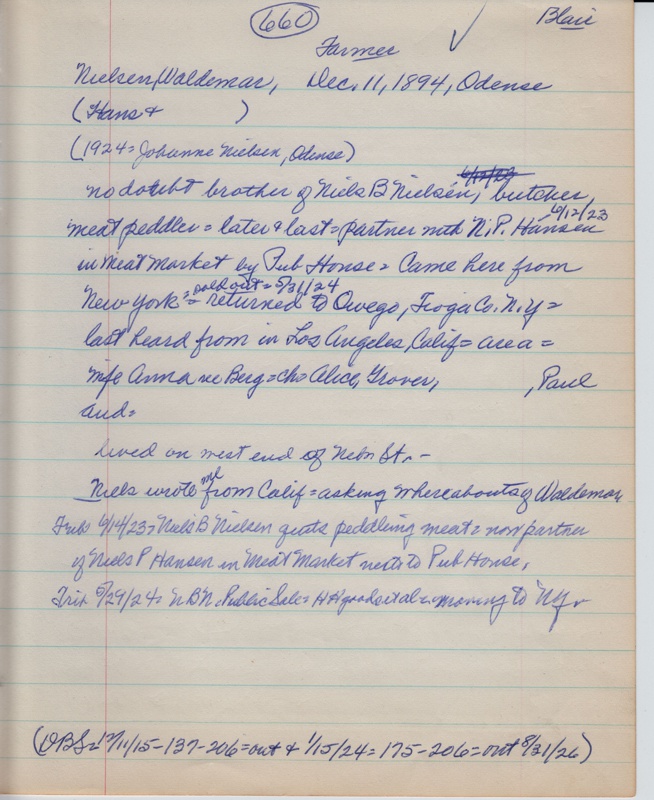 660
Blair
Farmer
Nielsen, Waldemar, Dec. 11, 1894, Odense
(Hans & )
(1924 = Johanne Nielsen, Odense)
no doubt brother of Niels B Nielsen, butcher,
meat peddler = later & last = partner with N.P. Hansen 6/12/23
in meat market by Pub House = Came here from
New York = sold out = 5/31/24 = returned to Owego, Tioga Co. N.Y =
last heard from in Los Angeles, Calif = area =
wife Anna ne Berg = ch = Alice, Grover, , Paul
and =
lived on west end of Nebr St. -
Niels wrote me from Calif = asking whereabouts of Waldemar
Trib 6/14/23 = Niels B Nielsen quits peddling meat = now partner
of Niels P Hansen in Meat Market next to Pub House,
Trib 5/29/24 = N.B.N. Public Sale = HH goods et al = moving to NY.
(DBS = 11/15-137-206 = out & 1/15/24 = 175-206 = out 8/31/26)